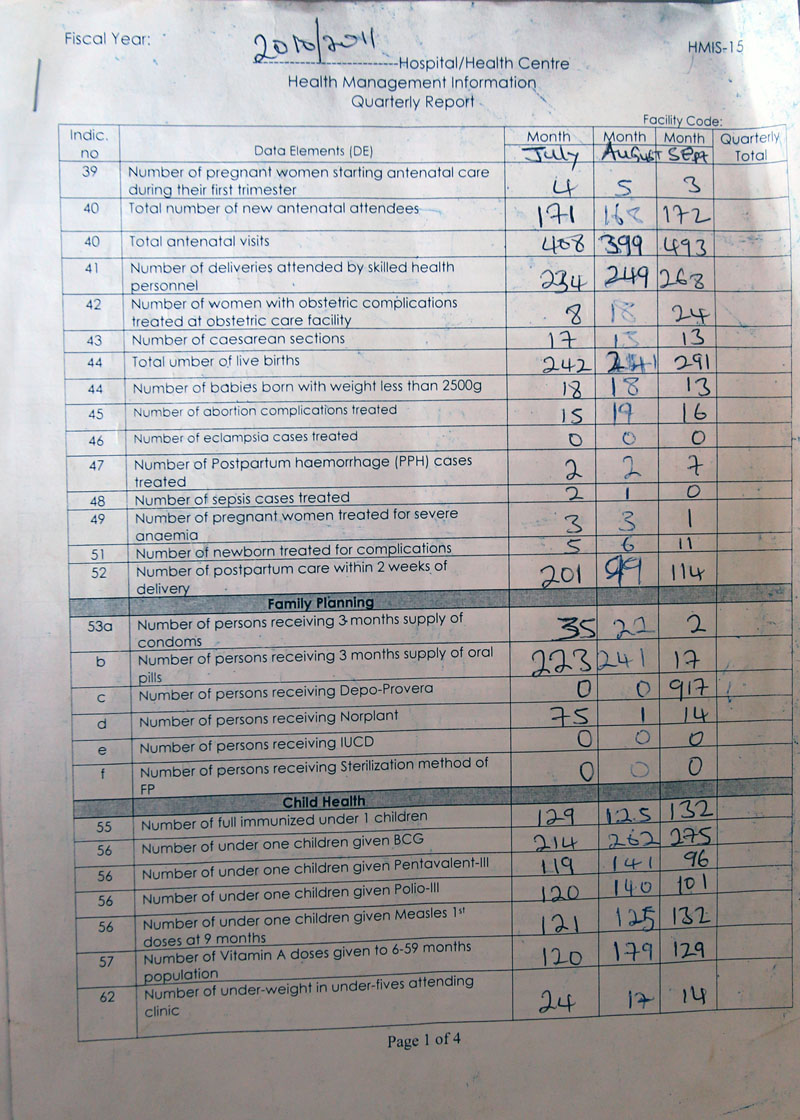 Fiscal Year: 2010/2011 HMIS-15
Hospital/Health Centre
Health Management Information
Quarterly Report
Facility Code:
Indic. no Data Elements (DE) Month July Month August Month Sept Quarterly Total
39 Number of pregnant women starting antenatal care
during their first trimester 4 5 3
40 Total number of new antenatal attendees 171 168 172
40 Total antenatal visits 408 399 493
41 Number of deliveries attended by skilled health
personnel 234 249 268
42 Number of women with obstetric complications
treated at obstetric care facility 8 18 24
43 Number of caesarean sections 17 13 13
44 Total umber of live births 242 241 291
44 Number of babies born with weight less than 2500g 18 18 13
45 Number of abortion complications treated 15 19 16
46 Number of eclampsia cases treated 0 0 0
47 Number of Postpartum haemorrhage (PPH) cases
treated 2 2 7
48 Number of sepsis cases treated 2 1 0
49 Number of pregnant women treated for severe
anaemia 3 3 1
51 Number of newborn treated for complications 5 6 11
52 Number of postpartum care within 2 weeks of
delivery 201 99 114
Family Planning
53a Number of persons receiving 3 months supply of
condoms 35 22 2
b Number of persons receiving 3 months supply of oral
pills 223 241 17
c Number of persons receiving Depo-Provera 0 0 917
d Number of persons receiving Norplant 75 1 14
e Number of persons receiving IUCD 0 0 0
f Number of persons receiving Sterilization method of
FP 0 0 0
Child Health
55 Number of full immunized under 1 children 129 125 132
56 Number of under one children given BCG 214 262 275
56 Number of under one children given Pentavalent-III 119 141 96
56 Number of under one children given Polio-III 120 140 101
56 Number of under one children given Measles 1st
doses at 9 months 121 125 132
57 Number of Vitamin A doses given to 6-59 months
population 120 179 129
62 Number of under-weight in under-fives attending
clinic 24 17 14
Page 1 of 4